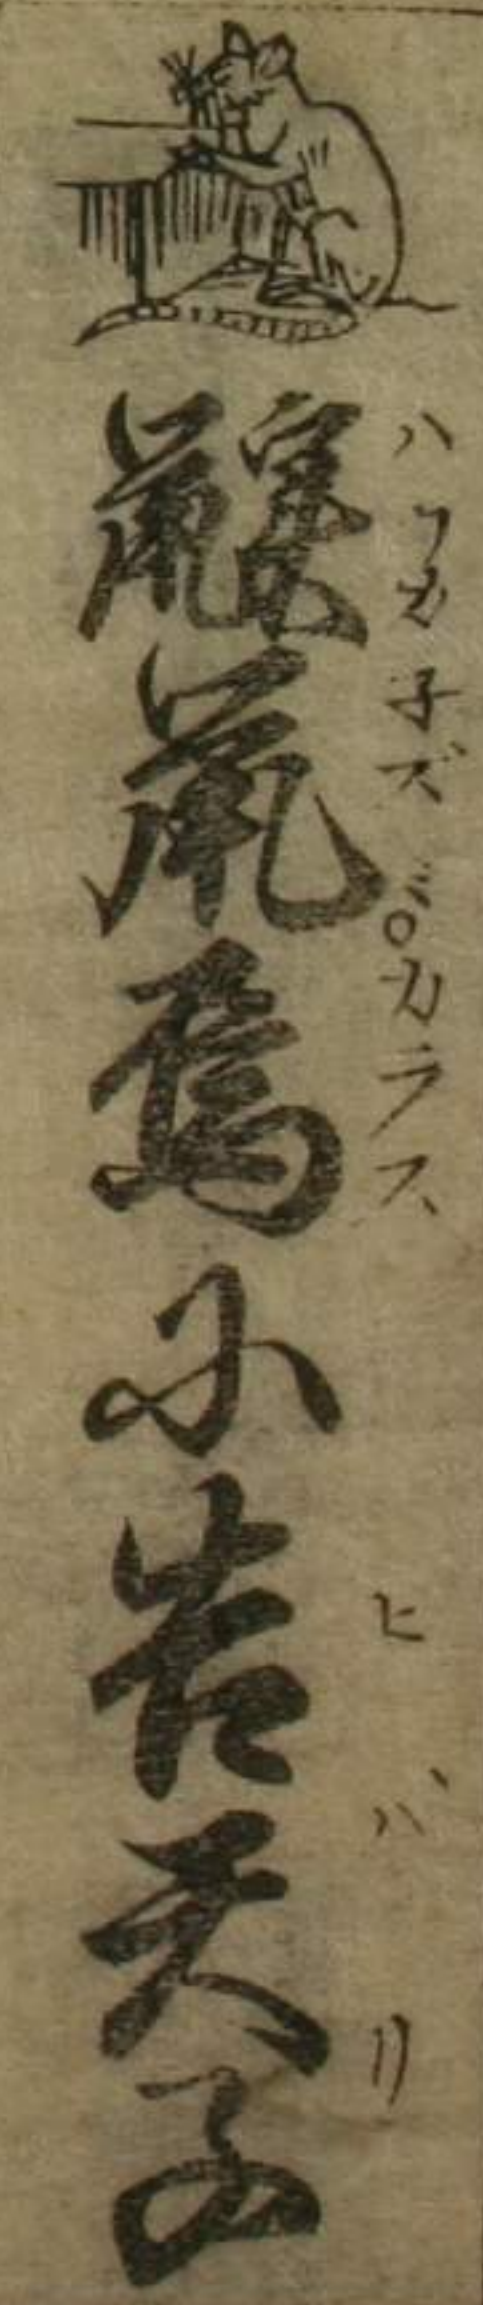 鼷鼠烏小告天子
ハツカ子ズミ○カラス
ヒバリ